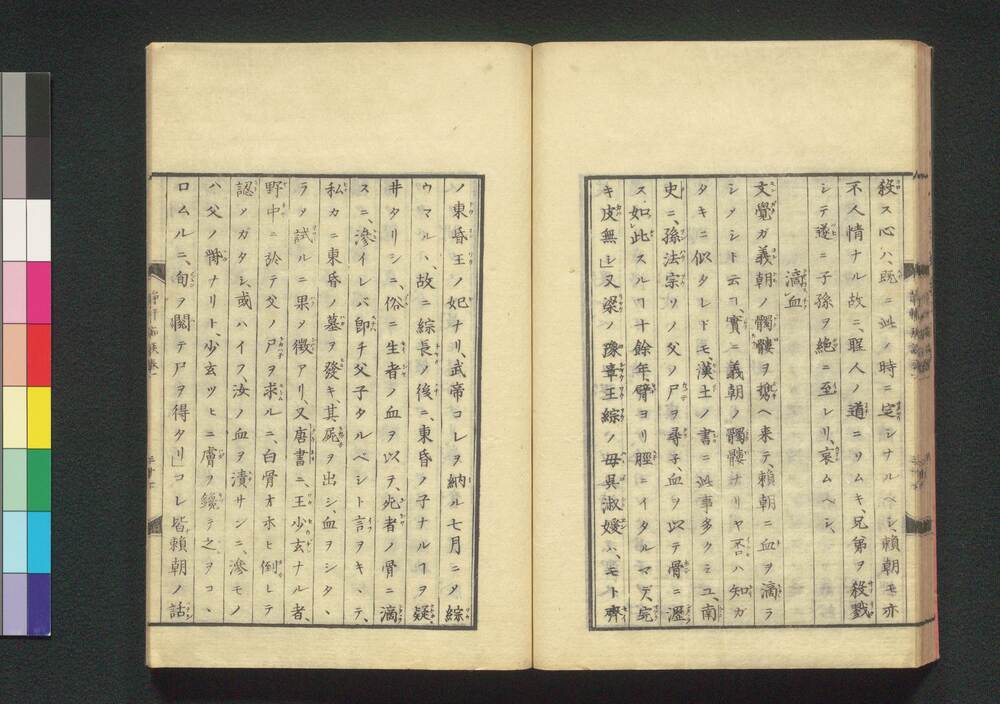 殺ス心ハ、既ニ此ノ時ニ定シナルベシ、頼朝モ亦
不人情ナル故ニ、聖人ノ道ニソムキ、兄弟ヲ殺戮
シテ遂ニ子孫ヲ絶ニ至レリ、哀ムヘシ、
滴血
文覺ガ義朝ノ髑髏ヲ携ヘ来テ、頼朝ニ血ヲ滴ラ
シメシト云コ、實ニ義朝ノ髑髏ナリヤ否ハ知ガ
タキニ似タレドモ、漢土ノ書ニ此事多クミユ、南
史ニ、孫法宗ソノ父ノ尸ヲ尋子、血ヲ以テ骨ニ瀝
ス、如此スルヿ十餘年、臂ヨリ脛ニイタルマデ、完
キ皮無シ」又梁ノ豫章王綜ノ母呉淑媛ハ、モト齊
ノ東昏王ノ妃ナリ、武帝コレヲ納ル七月ニソ綜
ウマルハ、故ニ綜長ノ後ニ、東昏ノ子ナルヿヲ疑
井タリシニ、俗ニ生者ノ血ヲ以テ、死者ノ骨ニ滴
スニ、滲イレバ即チ父子タルベシト言ヲキヽテ、
私カニ東昏ノ墓ヲ發キ、其屍ヲ出シ、血ヲシタヽ
ラメ試ルニ果メ徴アリ、又唐書ニ、王少玄ナル者、
野中ニ於テ父ノ尸ヲ求ルニ、白骨オホヒ倒レテ
認メガタシ、或ハイフ、汝ノ血ヲ漬サンニ、滲モノ
ハ父ノ胔ナリト、少玄ツヒニ膚ヲ鑱テ之ヲコヽ
ロムルニ、旬ヲ閲テ尸ヲ得タリ」コレ皆頼朝ノ話